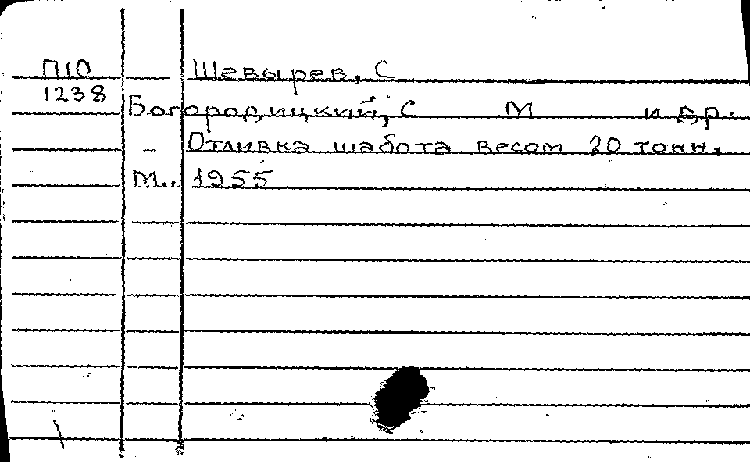 П10 Шевырев, С
1238
Богородицкий, С М и др.
- Отливка шабота весом 20 тонн.
М., 1955